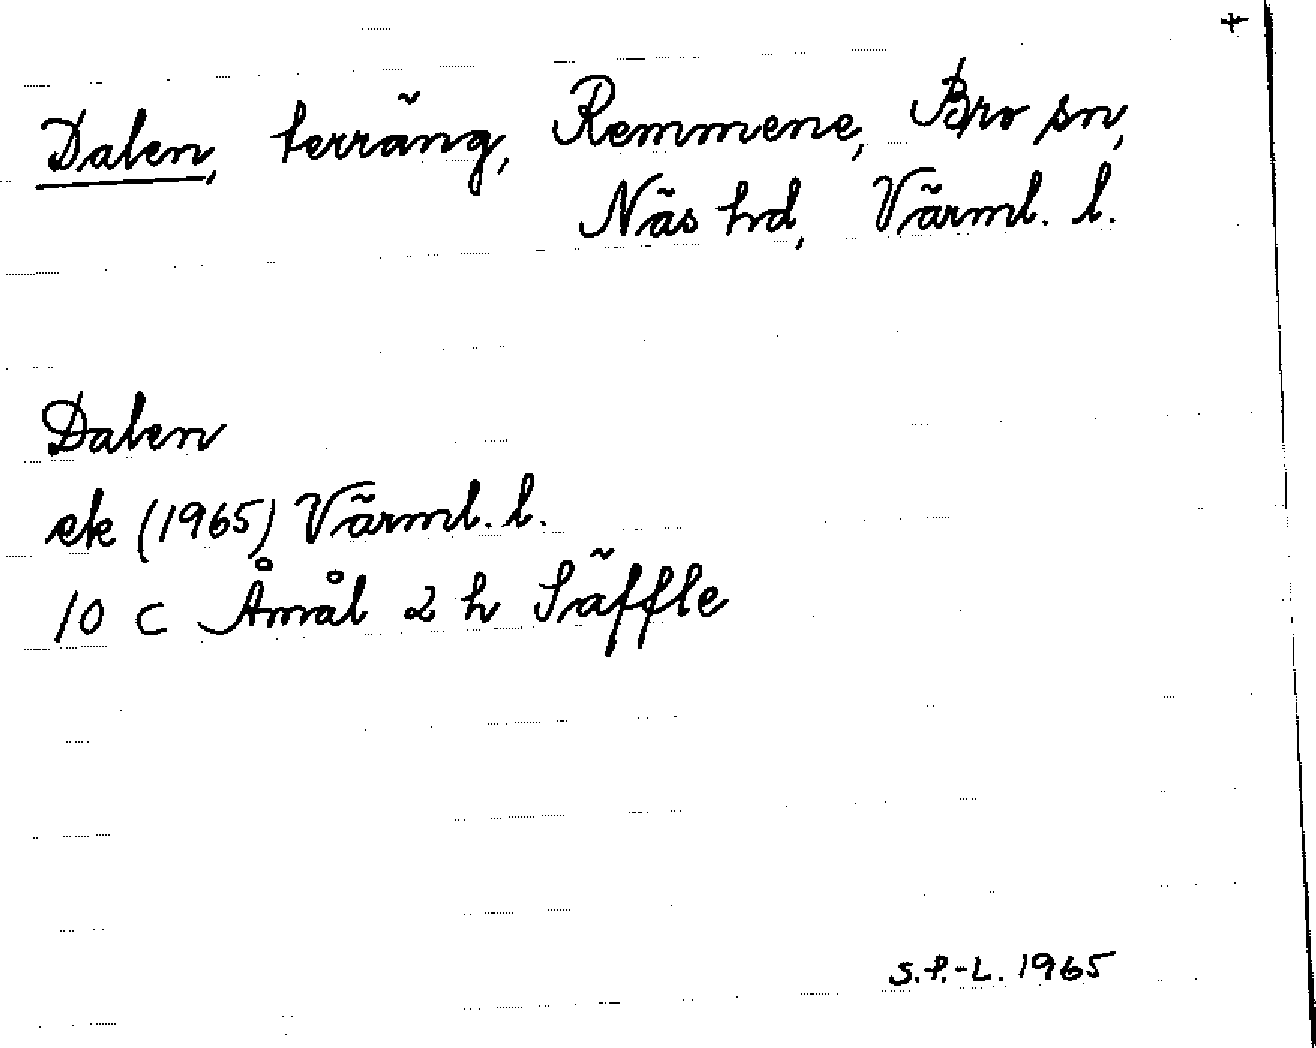 +
Dalen, terräng, Remmene, Bro sn,
Näs hd, Värml. l.
Dalen
ek (1965) Värml. l.
10 C Åmål 2 h Säffle
S.P.-L. 1965